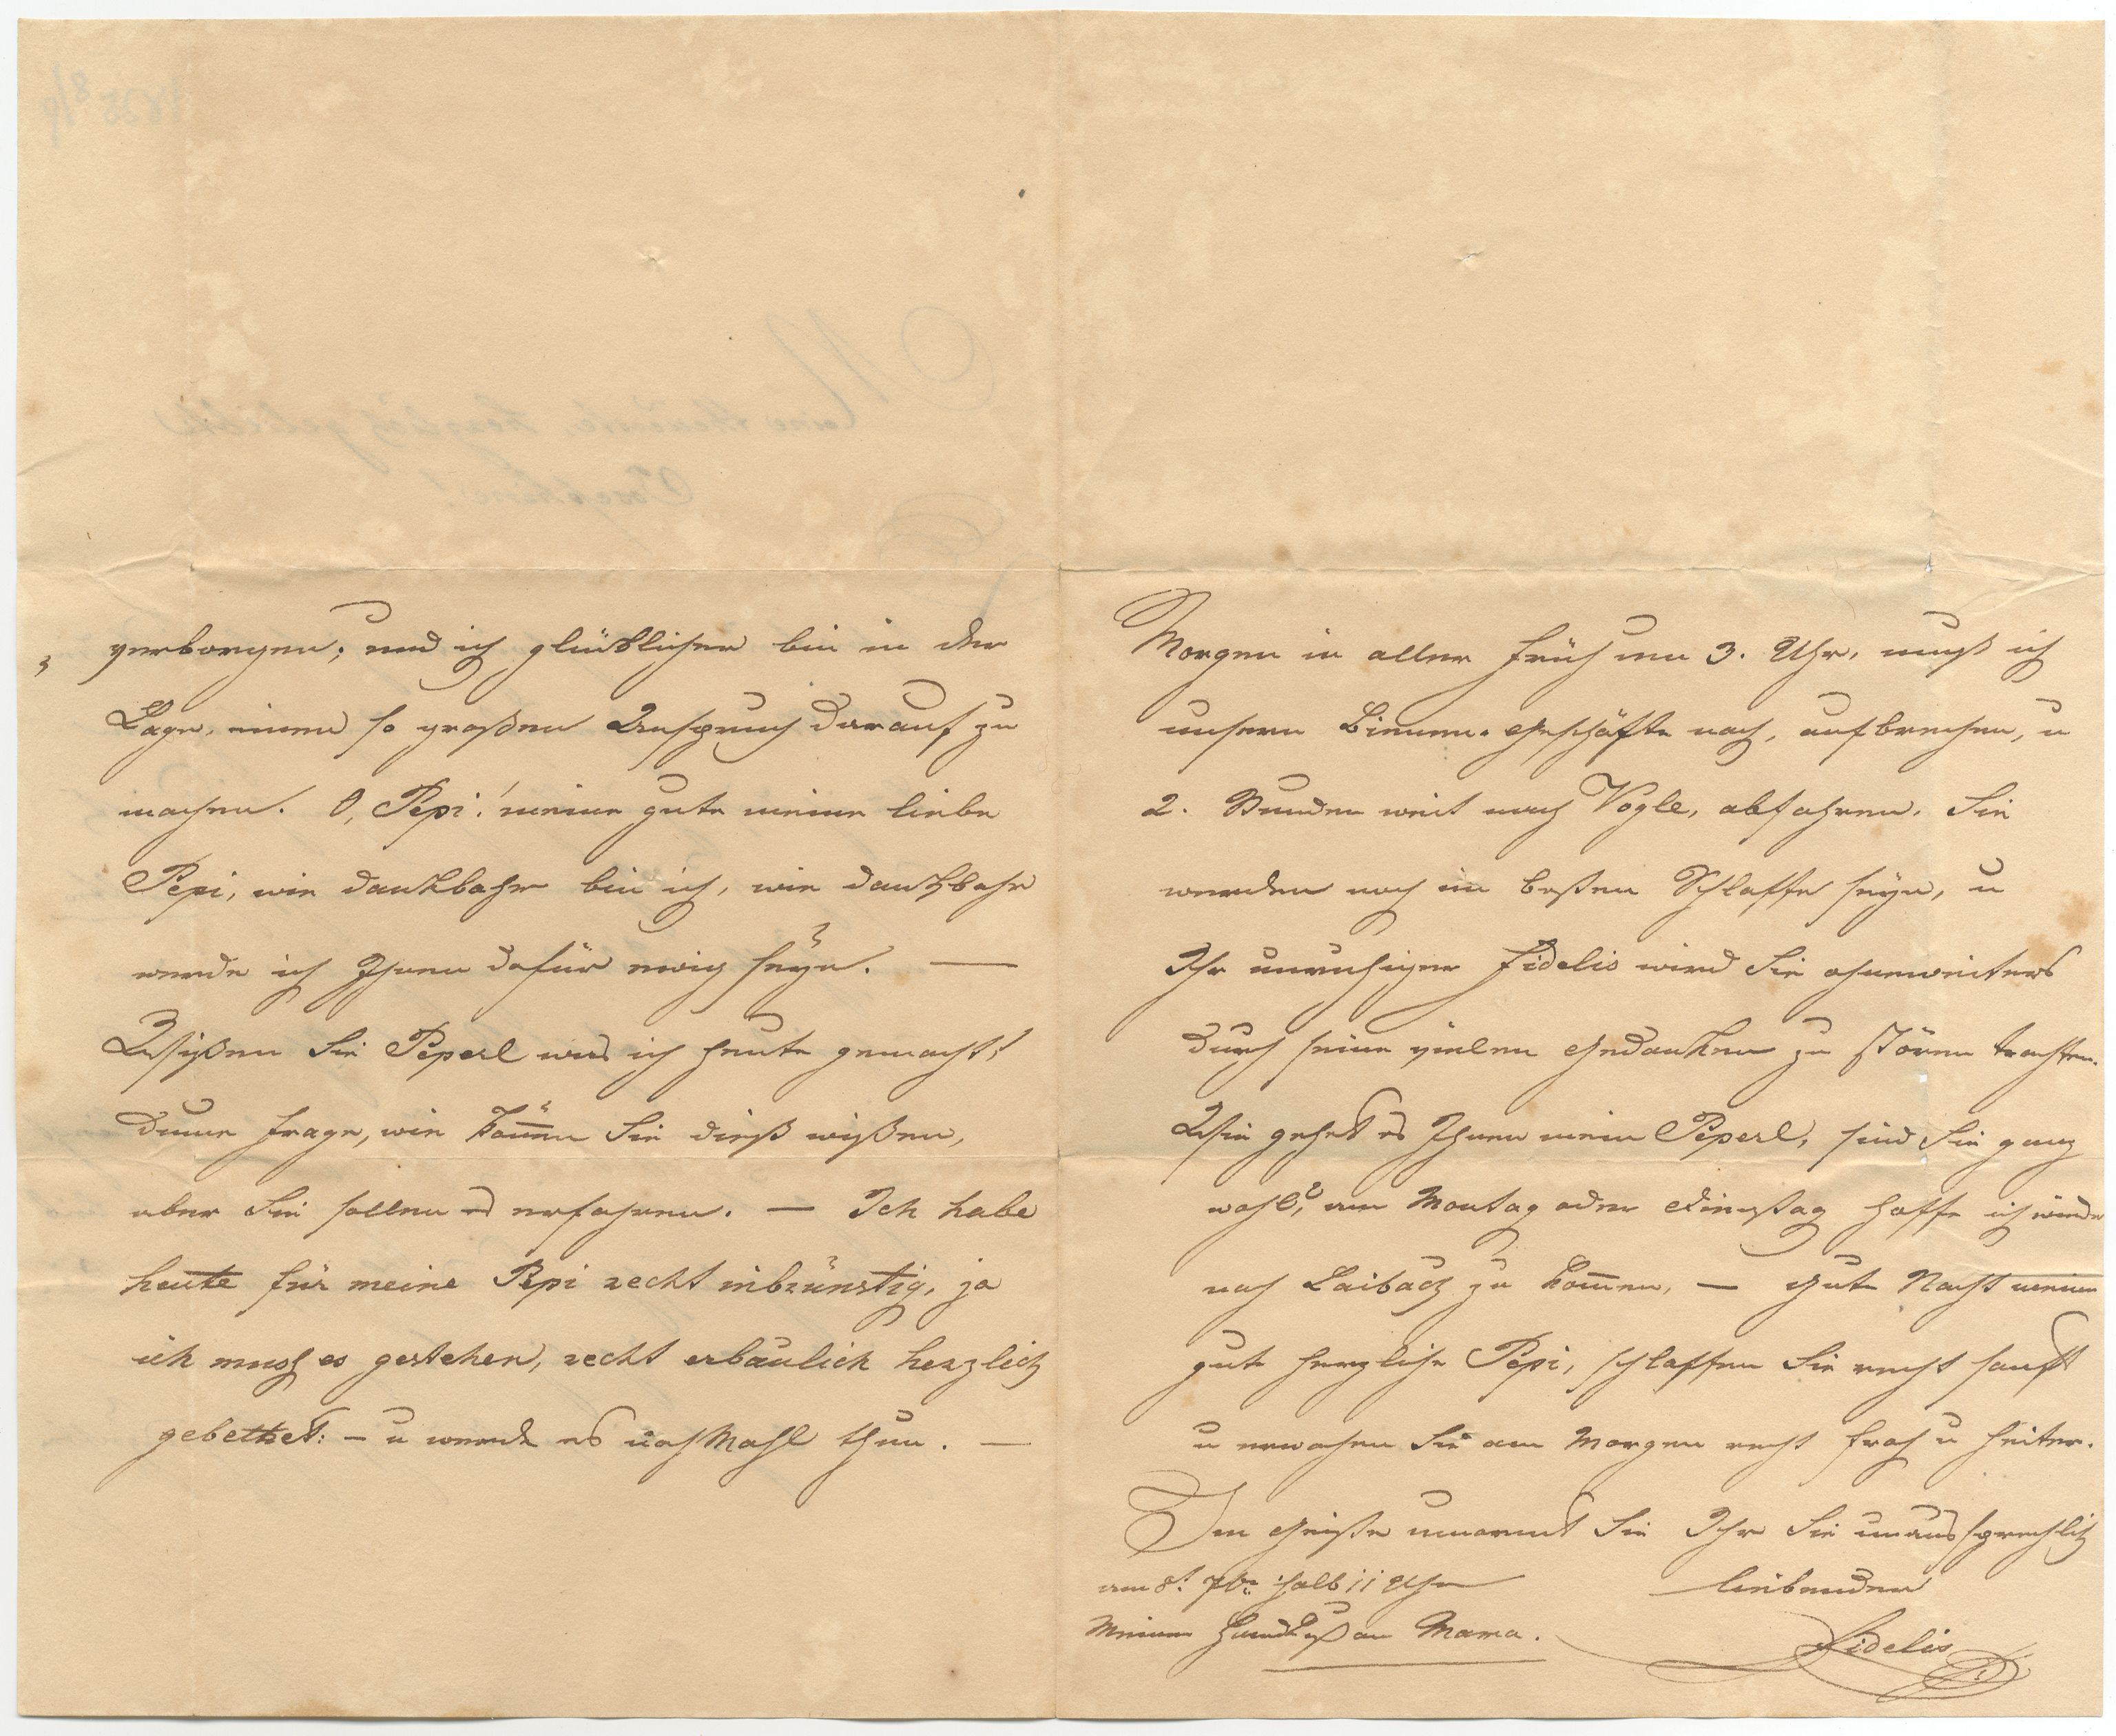 verborgen; und ich glücklicher bin in der
Lage, einen so großen Anspruch darauf zu
machen. O, Pepi! meine gute meine liebe
Pepi, wie dankbahr bin ich, wie dankbahr
werde ich Ihnen dafür ewig seÿn. —
Wißen Sie Peperl was ich heute gemacht?
Dume Frage, wie könen Sie dieß wißen,
aber Sie sollen es erfahren. — Ich habe
heute für meine Pepi recht inbrünstig, ja
ich muß es gestehen, recht erbaulich herzlich
gebethet: – u werde es nochmahl thun. —
Morgen in aller Früh um 3. Uhr, muß ich
unsern Bienen-Geschäfte nach, aufbrechen, u
2. Stunden weit nach Vogle, abfahren. Sie
werden noch im beßten Schlaffe seyn, u
Ihr unruhiger Fidelis wird Sie ohneweiters
durch seine vielen Gedanken zu stören trachten.
Wie gehet es Ihnen mein Peperl, sind Sie ganz
wohl?, am Montag oder Dienstag hoffe ich wieder
nach Laibach zu komen, — Gute Nacht meine
gute herzliche Pepi, schlaffen Sie recht sanft
u erwachen Sie am Morgen recht froh u heiter.
Im Geiste umarmt Sie Ihr Sie unaussprechlich
liebender
am 8t. 7br. halb 11 Uhr
Meinen Handkuß an Mama.
Fidelis